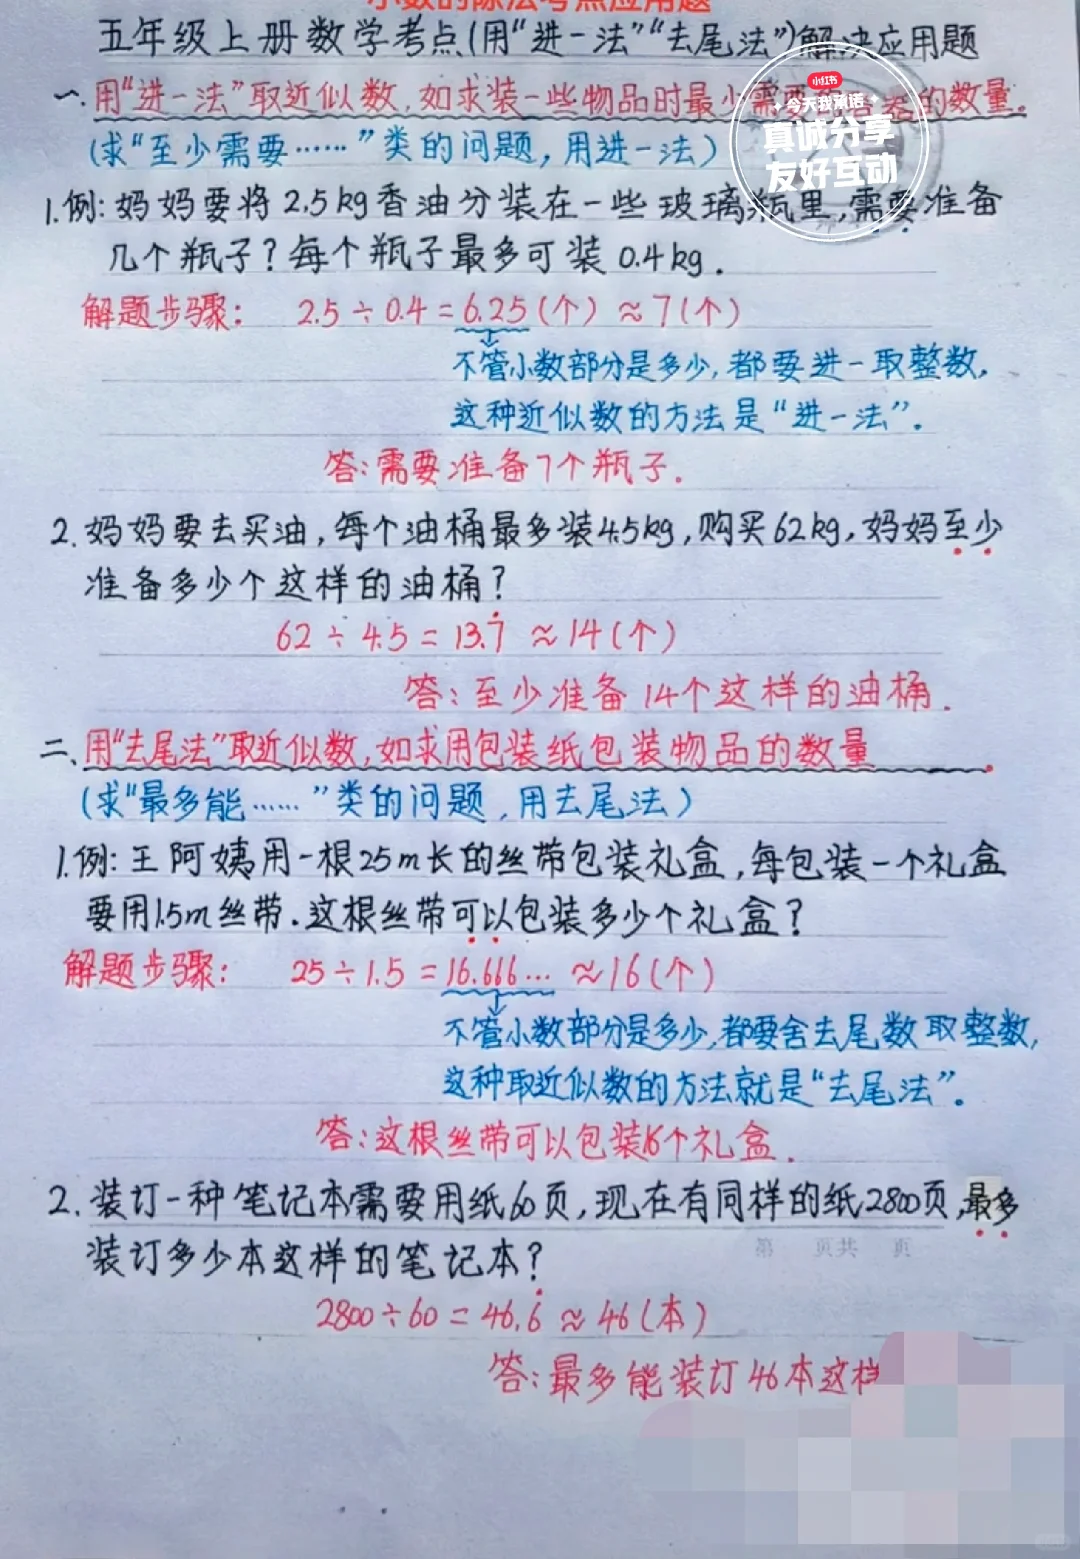 小数的除法考点应用题
五年级上册数学考点(用“进一法”“去尾法”)解决应用题
一、用“进一法”取近似数,如求装一些物品时最少需要的容器的数量。
(求“至少需要……”类的问题,用进一法)
小红书
今天我承诺
真诚分享
友好互动
1.例:妈妈要将2.5kg香油分装在一些玻璃瓶里,需要准备
几个瓶子?每个瓶子最多可装0.4kg.
解题步骤: 2.5÷0.4=6.25(个)≈7(个)
不管小数部分是多少,都要进一取整数,
这种近似数的方法是“进一法”.
答:需要准备7个瓶子.
2.妈妈要去买油,每个油桶最多装4.5kg,购买62kg,妈妈至少
准备多少个这样的油桶?
62÷4.5=13.7̇≈14(个)
答:至少准备14个这样的油桶.
二、用“去尾法”取近似数,如求用包装纸包装物品的数量.
(求“最多能……”类的问题,用去尾法)
1.例:王阿姨用一根25m长的丝带包装礼盒,每包装一个礼盒
要用1.5m丝带.这根丝带可以包装多少个礼盒?
解题步骤: 25÷1.5=16.666…≈16(个)
不管小数部分是多少,都要舍去尾数取整数,
这种取近似数的方法就是“去尾法”。
答:这根丝带可以包装16个礼盒.
2.装订一种笔记本需要用纸60页,现在有同样的纸2800页,最多
装订多少本这样的笔记本?
2800÷60=46.6̇≈46(本)
答:最多能装订46本这样